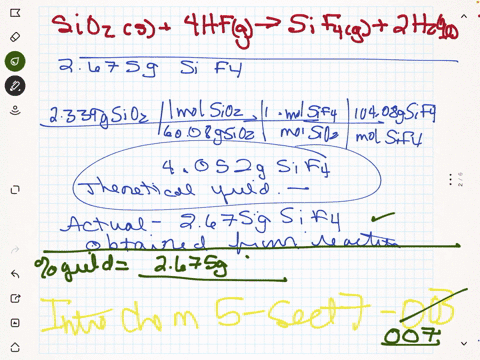 SiO2(s) + 4HF(g) → SiF4(g) + 2H2O(l)
2.675g SiF4
2.339g SiO2 | 1mol SiO2 | 1 mol SiF4 | 104.08g SiF4
60.08g SiO2 | mol SiO2 | mol SiF4
4.052g SiF4
Theoretical yield. —
Actual - 2.675g SiF4 ✓
obtained from reaction
% yield = 2.675g
Intro chem 5-Sect 7 -
007